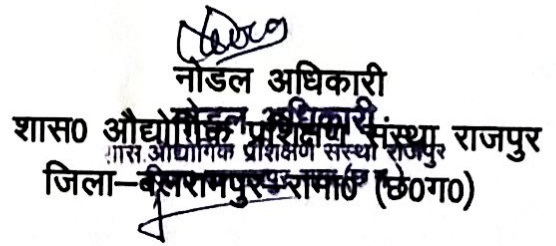 नोडल अधिकारी
नोडल अधिकारी
शास0 औद्योगिक प्रशिक्षण संस्था राजपुर
शास. औद्योगिक प्रशिक्षण संस्था राजपुर
जिला–बलरामपुर–रामा0 (छ0ग0)